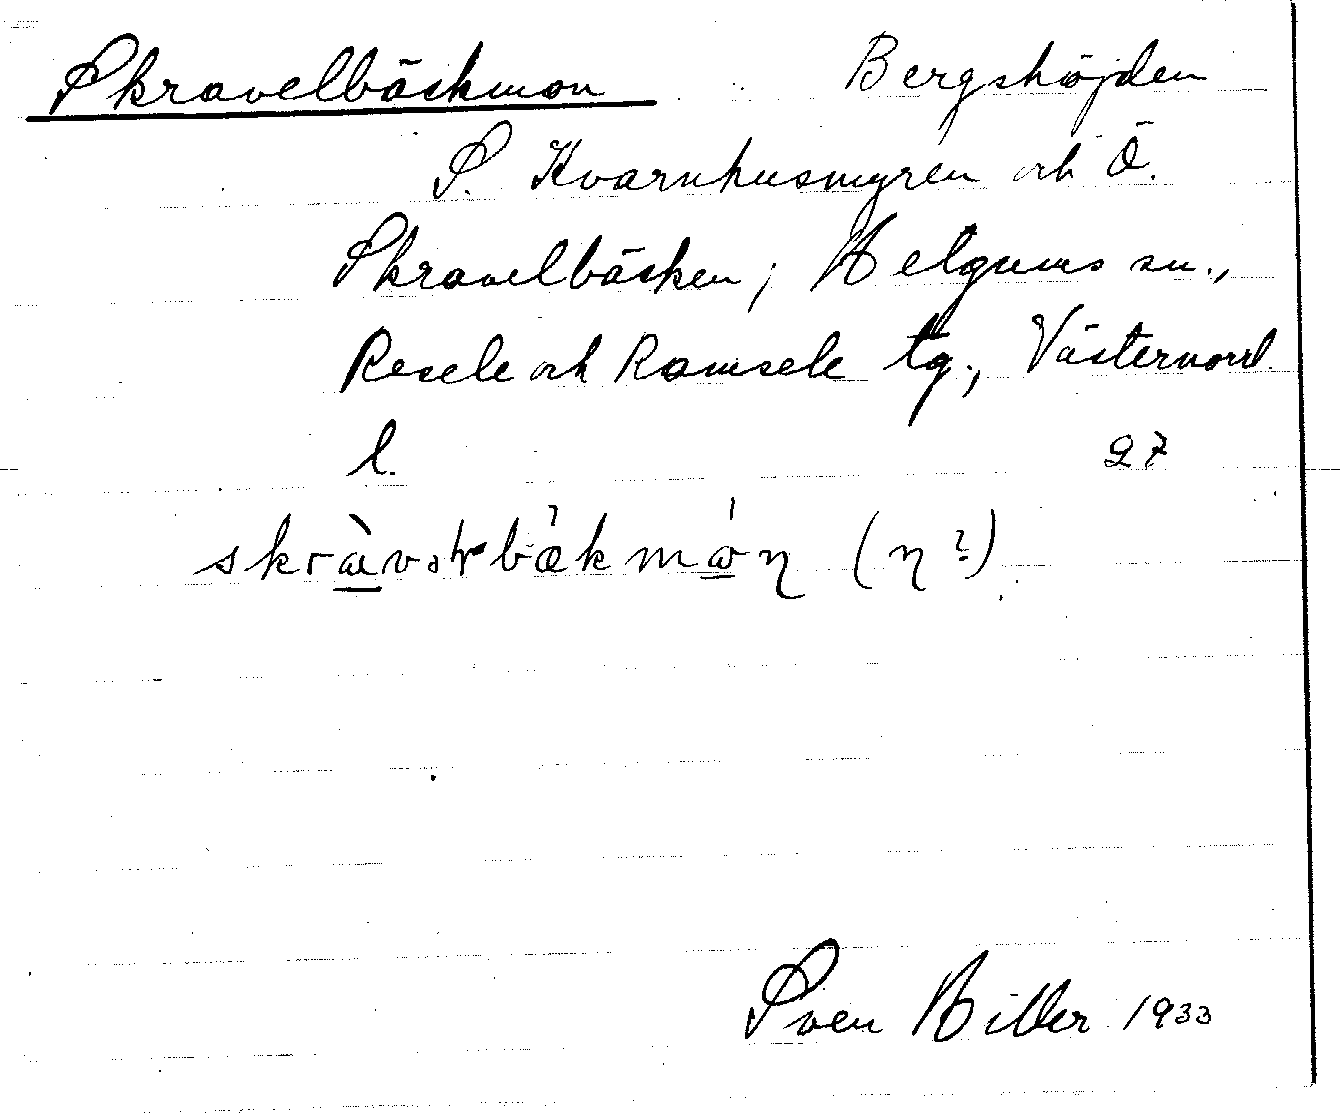 Skravelbäckmon Bergshöjden
S. Kvarnhusmyren och Ö.
Skravelbäcken, Helgums sn.,
Resele och Ramsele tg., Västernorrl.
l. 27
(η?)
Sven Hiller 1933